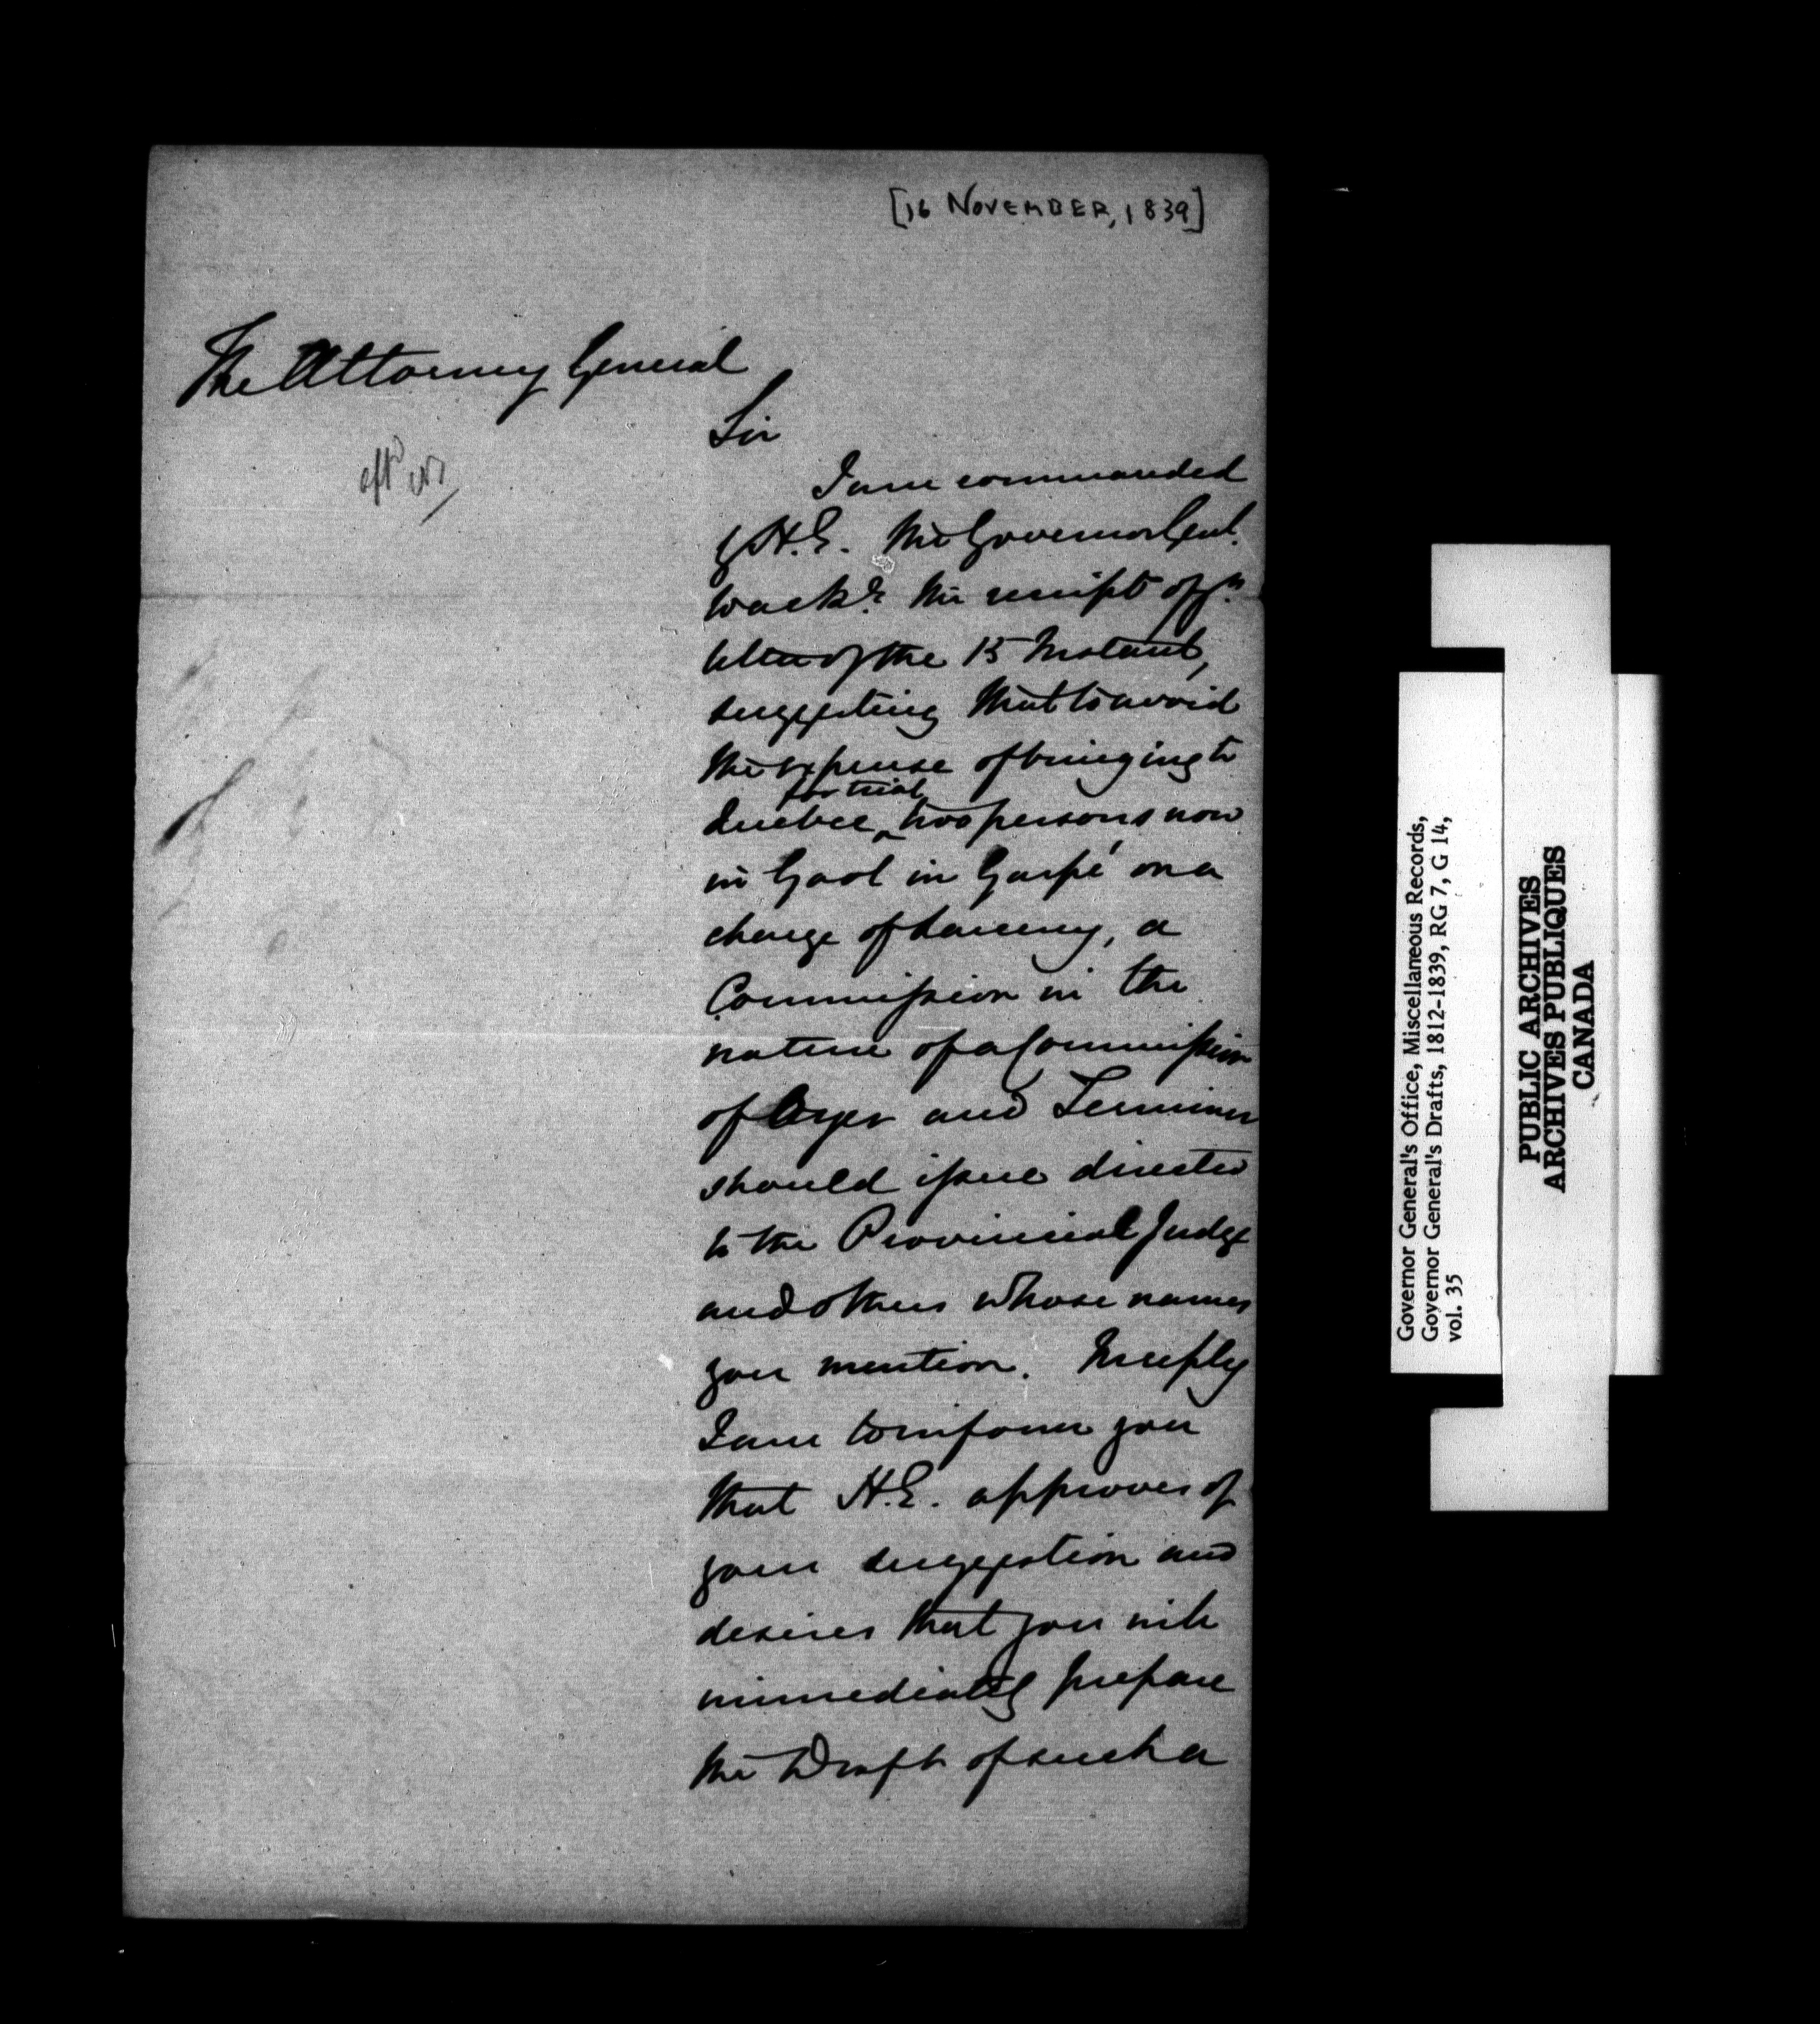 [16 NOVEMBER, 1839]
The Attorney General
Sir
I am commanded
by H.E. the Governor Genl.
to ackn. the receipt of yr.
letter of the 15 Instant,
suggesting that to avoid
the expense of bringing to
for trial
Quebec ^ two persons now
in Gaol in Gaspé on a
charge of Larceny, a
Commission in the
nature of a Commission
of Oyer and Terminer
should issue directed
to the Provincial Judge
and others whose names
you mention. In reply
I am to inform you
that H.E. approves of
your suggestion and
desires that you will
immediately prepare
the Draft of such a
Governor General's Office, Miscellaneous Records,
Governor General's Drafts, 1812-1839, RG 7, G 14,
vol. 35
PUBLIC ARCHIVES
ARCHIVES PUBLIQUES
CANADA